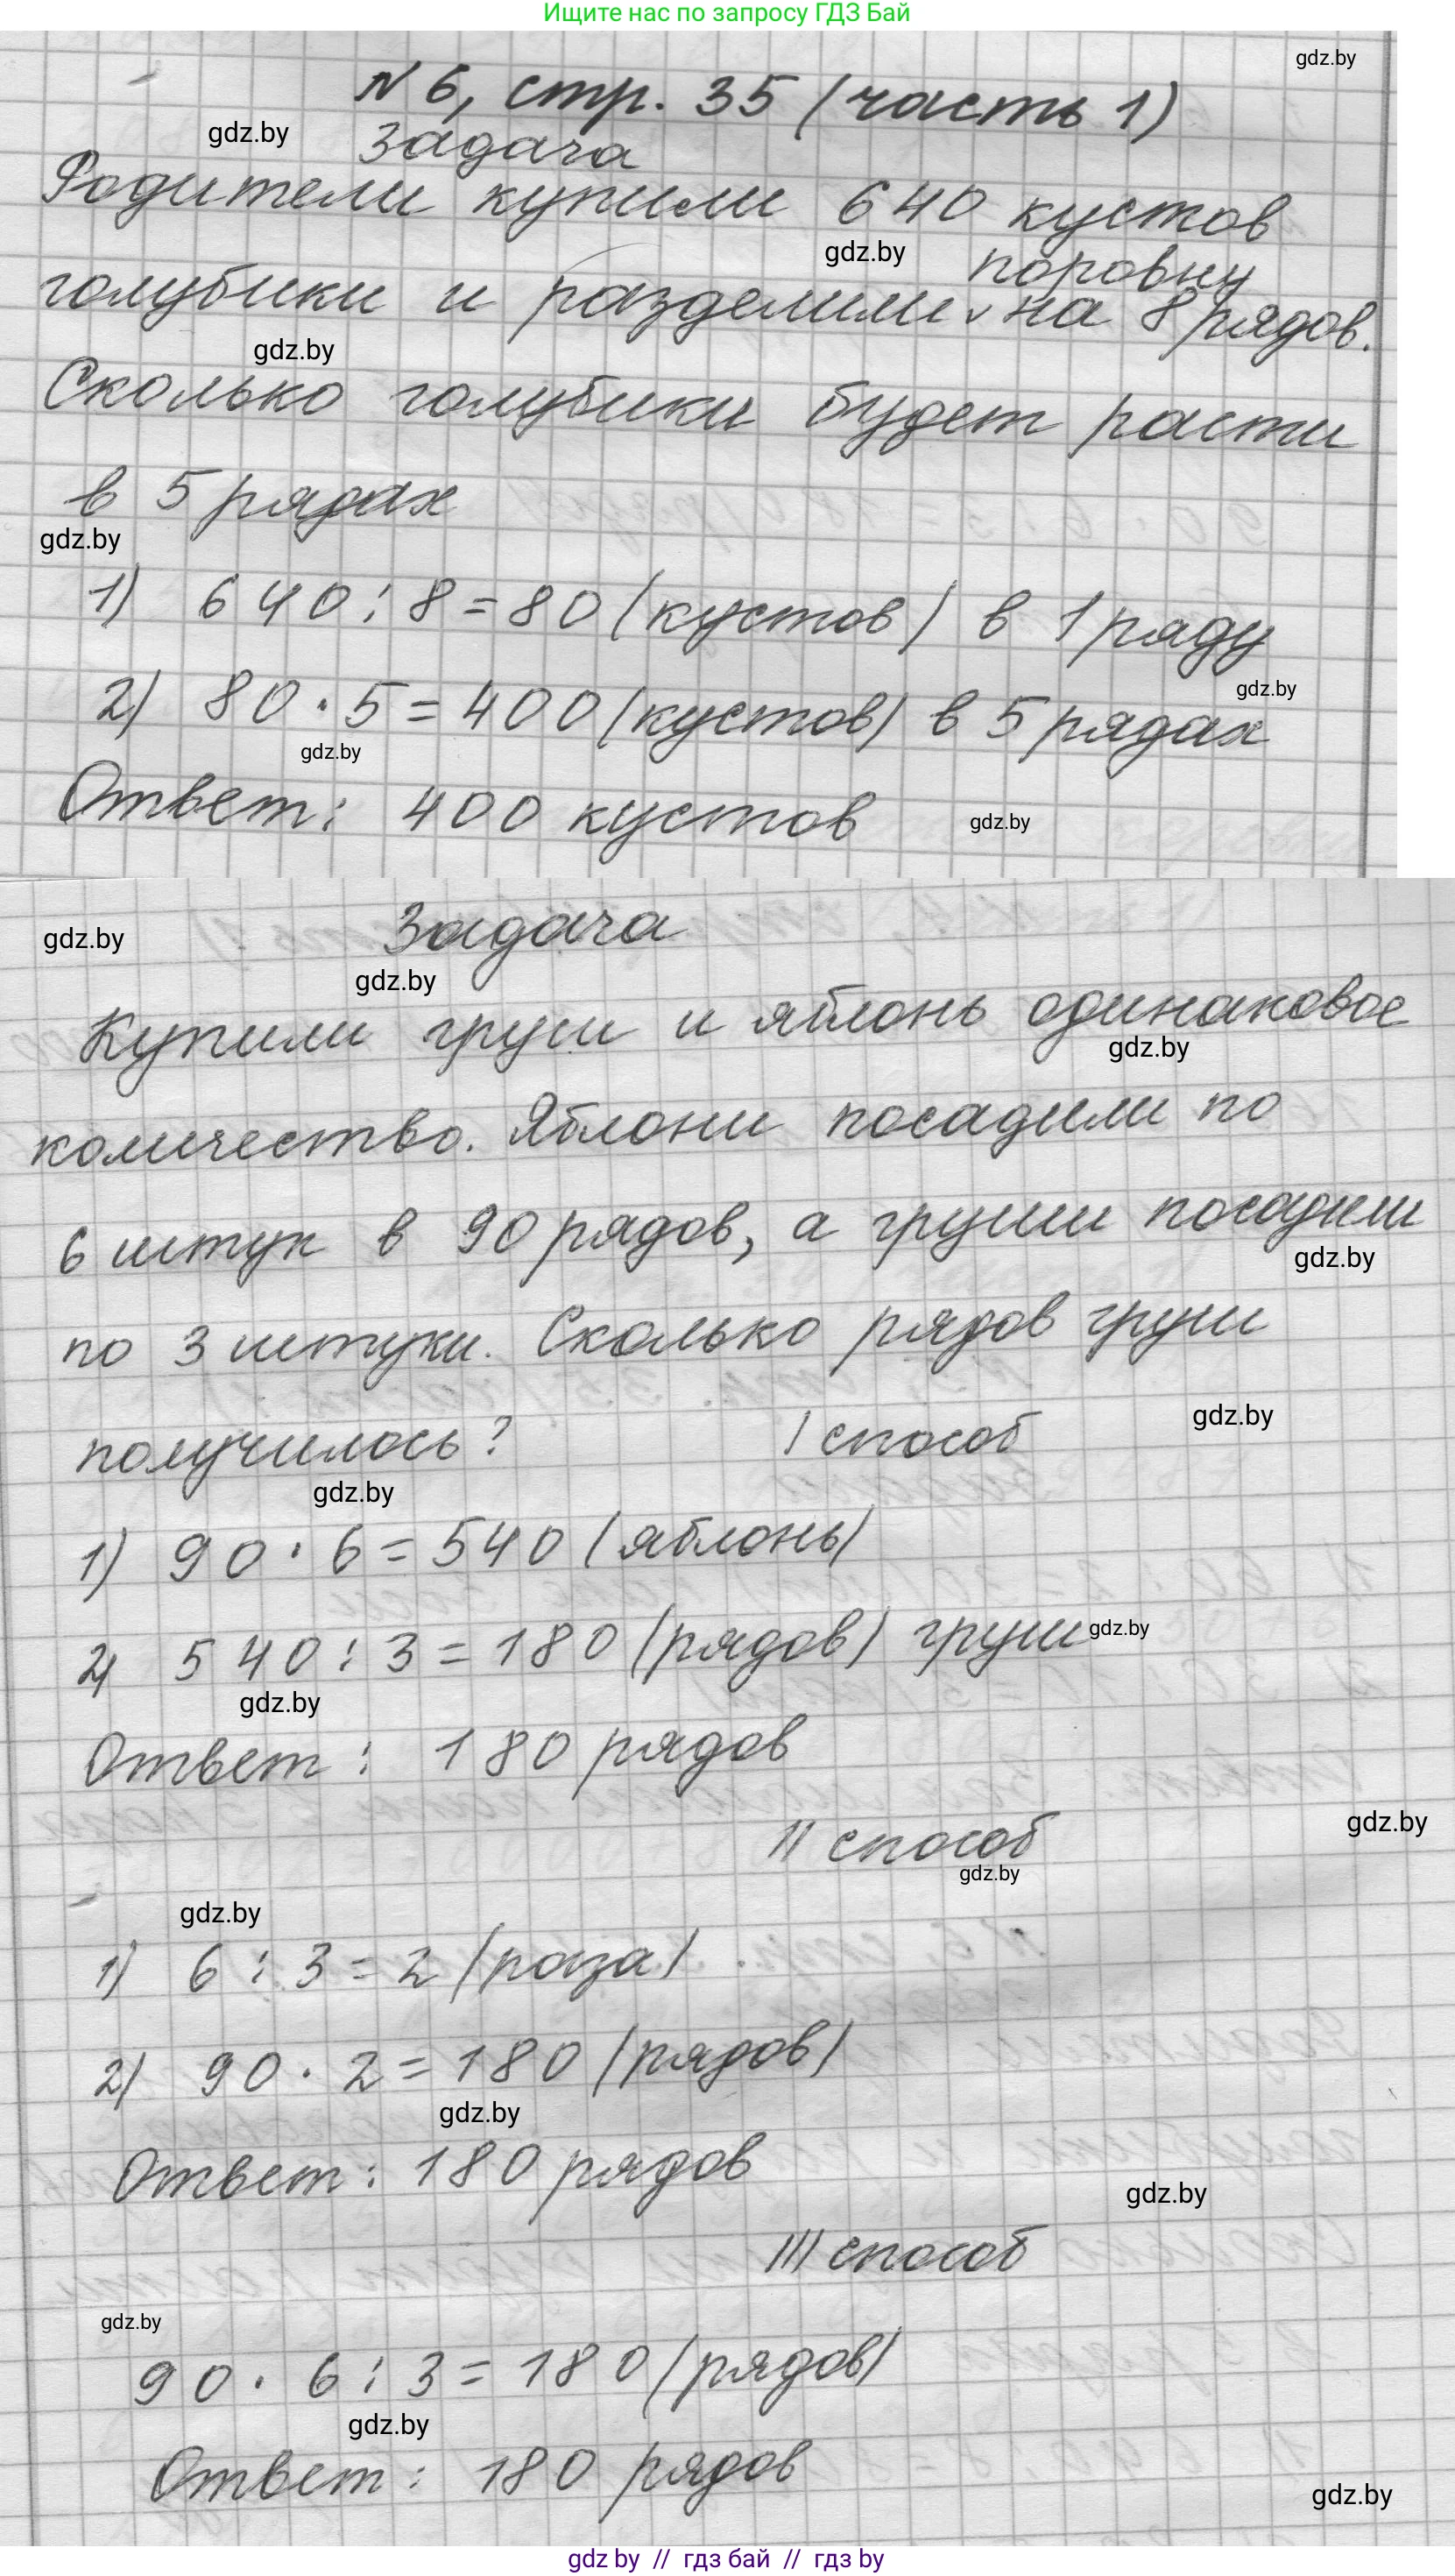 Ищите нас по запросу ГДЗ Бай
gdz.by
N 6, стр. 35 (часть 1)
gdz.by
Задача
Родители купили 640 кустов
gdz.by
поровну
голубики и разделили ∨ на 8 рядов.
gdz.by
Сколько голубики будет расти
в 5 рядах
gdz.by
1) 640 : 8 = 80 (кустов) в 1 ряду
gdz.by
2) 80 · 5 = 400 (кустов) в 5 рядах
gdz.by
Ответ: 400 кустов
gdz.by
Задача
gdz.by
gdz.by
Купили груш и яблонь одинаковое
gdz.by
количество. Яблони посадили по
6 штук в 90 рядов, а груши посадили
gdz.by
по 3 штуки. Сколько рядов груш
получилось? I способ
gdz.by
gdz.by
1) 90 · 6 = 540 (яблонь)
2) 540 : 3 = 180 (рядов) груш
gdz.by
gdz.by
Ответ: 180 рядов
II способ
gdz.by
gdz.by
gdz.by
1) 6 : 3 = 2 (раза)
2) 90 · 2 = 180 (рядов)
gdz.by
Ответ: 180 рядов
gdz.by
III способ
gdz.by
90 · 6 : 3 = 180 (рядов)
gdz.by
Ответ: 180 рядов
gdz.by
gdz by // гдз бай // гдз by